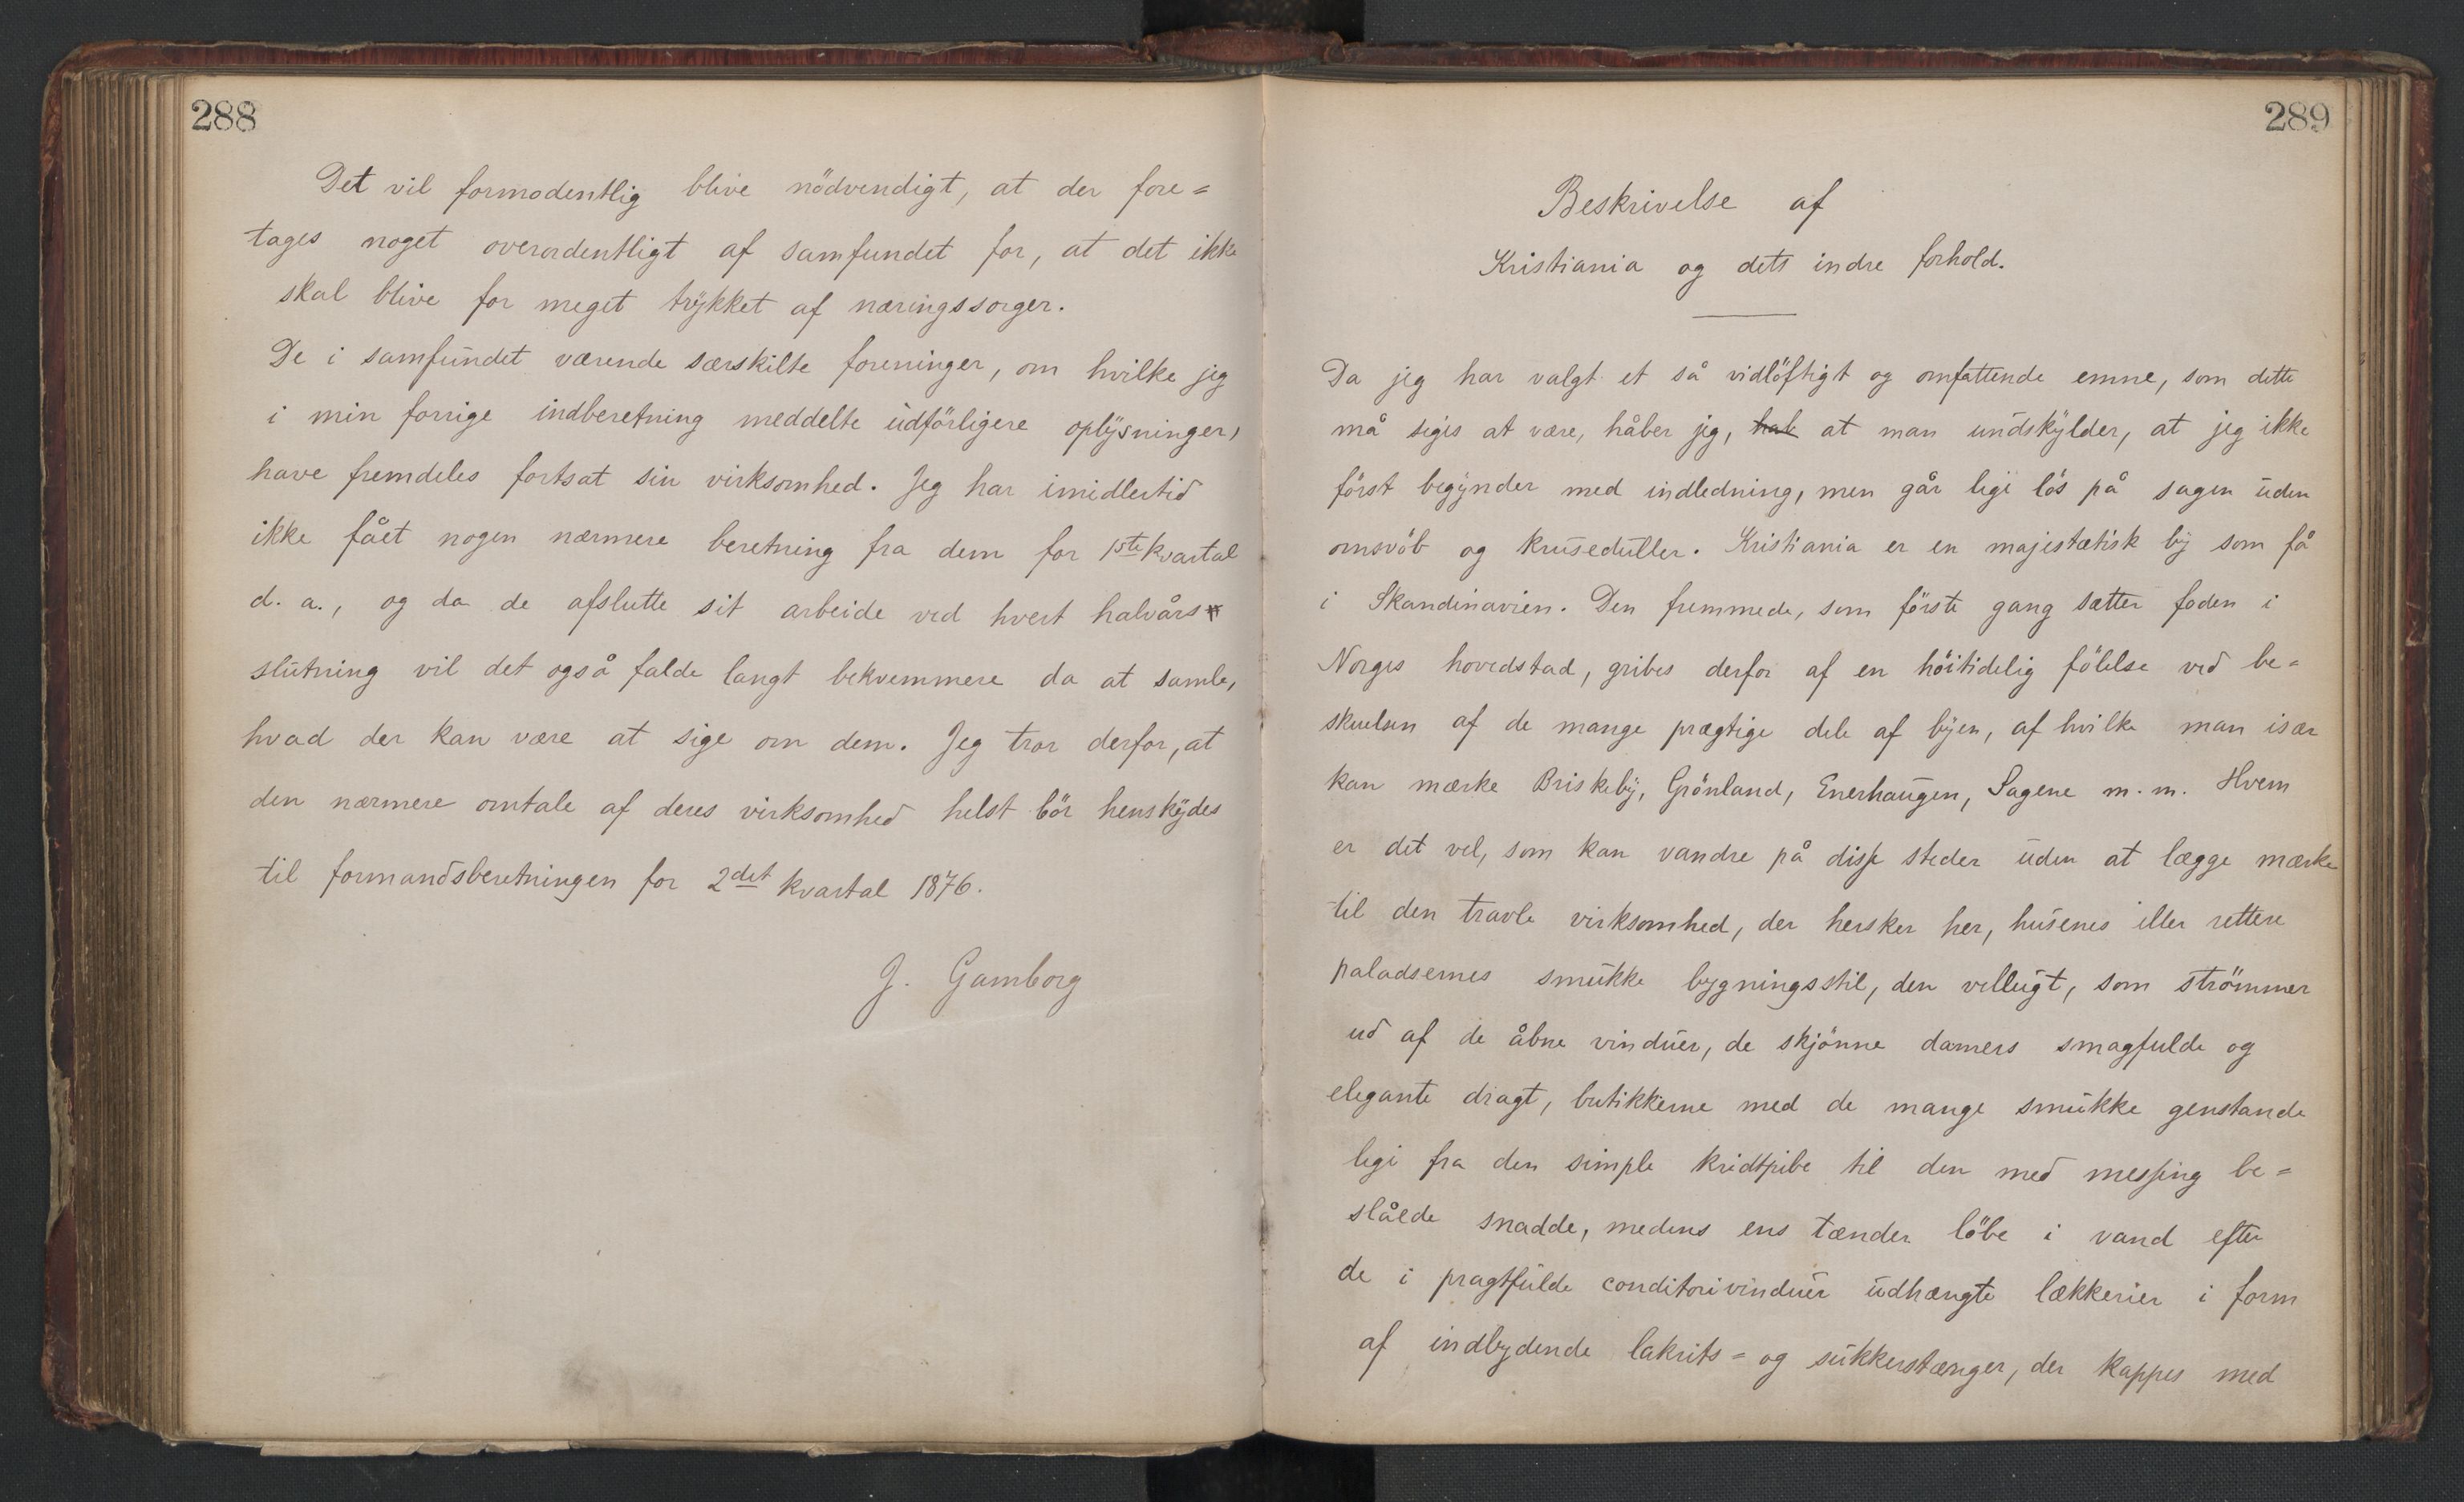 288
Det vil formodentlig blive nödvendigt, at der fore=
tages noget overordentligt af samfundet for, at det ikke
skal blive for meget trykket af næringssorger.
De i samfundet værende særskilte foreninger, om hvilke jeg
i min forrige indberetning meddelte udförligere oplysninger,
have fremdeles fortsat sin virksomhed. Jeg har imidlertid
ikke fået nogen nærmere beretning fra dem for 1ste kvartal
d. a., og da de afslutte sit arbeide ved hvert halvårs
slutning vil det også falde langt bekvemmere da at samle,
hvad der kan være at sige om dem. Jeg tror derfor, at
den nærmere omtale af deres virksomhed helst bör henskydes
til formandsberetningen for 2det kvartal 1876.
J. Gamborg
289
Beskrivelse af
Kristiania og dets indre forhold.
Da jeg har valgt et så vidlöftigt og omfattende emne, som dette
må siges at være, håber jeg, hab at man undskylder, at jeg ikke
först begynder med indledning, men går lige lös på sagen uden
omsvöb og kruseduller. Kristiania er en majestætisk by som få
i Skandinavien. Den fremmede, som förste gang sætter foden i
Norges hovedstad, gribes derfor af en höitidelig fölelse ved be=
skuelsen af de mange prægtige dele af byen, af hvilke man især
kan mærke Briskeby, Grönland, Enerhaugen, Sagene m. m. Hvem
er det vel, som kan vandre på disse steder uden at lægge mærke
til den travle virksomhed, der hersker her, husenes eller rettere
paladsernes smukke bygningsstil, den vellugt, som strömmer
ud af de åbne vinduer, de skjönne damers smagfulde og
elegante dragt, butikkerne med de mange smukke genstande
lige fra den simple kridtpibe til den med messing be=
slåede snadde, medens ens tænder löbe i vand efter
de i pragtfulde conditorivinduer udhængte lækkerier i form
af indbydende lakrits= og sukkerstænger, der kappes med